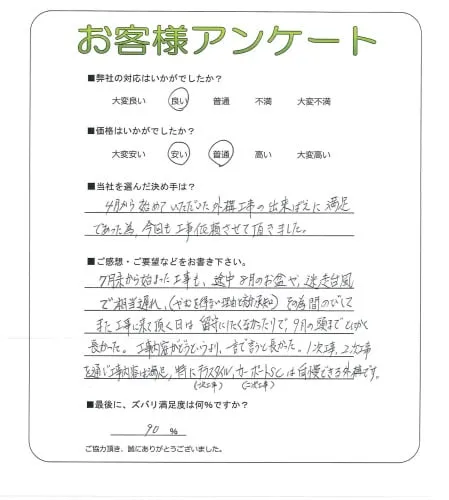 お客様アンケート
■弊社の対応はいかがでしたか?
大変良い 良い 普通 不満 大変不満
■価格はいかがでしたか?
大変安い 安い 普通 高い 大変高い
■当社を選んだ決め手は?
4月から始めていただいた外構工事の出来ばえに満足
であった為、今回も工事依頼させて頂きました。
■ご感想・ご要望などをお書き下さい。
7月末から始まった工事も、途中8月のお盆や、迷走台風
で相当遅れ、(やむを得ない理由と効承知) その為間のびして
また工事に来て頂く日は留守にしたくなかったりで、9月の頭までとにかく
長かった。工事内容がどうというより、一言で言うと長かった。1次工事、2次工事
を通じ工事内容は満足、特にテラスタイル、カーポートSCは自慢できる外構です。
(一次工事) (二次工事)
■最後に、ズバリ満足度は何%ですか?
90 %
ご協力頂き、誠にありがとうございました。